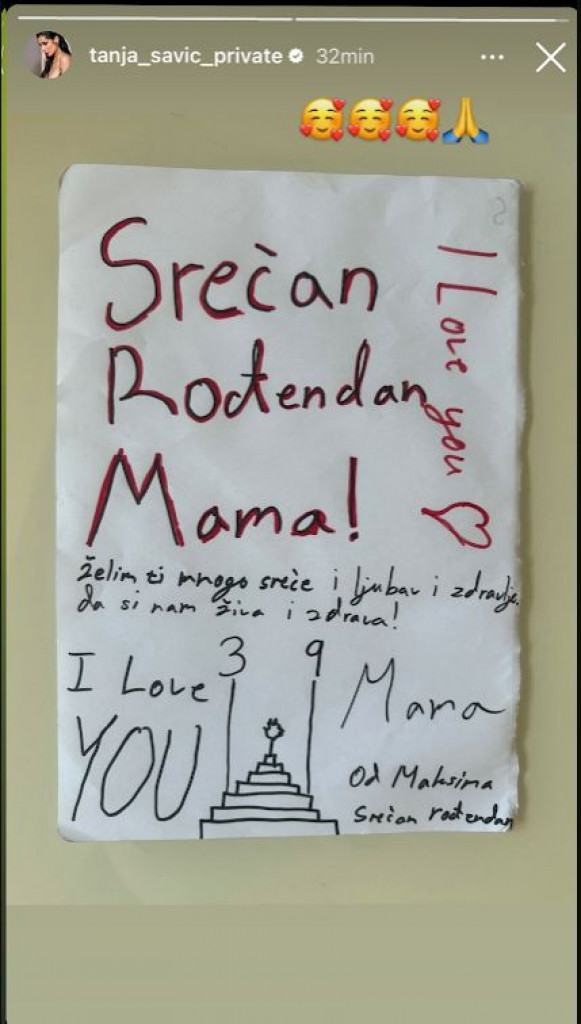 tanja_savic_private 32min
🥰🥰🥰🙏
Srećan
Rođendan
Mama!
I Love you ♡
Želim ti mnogo sreće i ljubav i zdravlje.
da si nam živa i zdrava!
3 9
I Love
YOU
Mama
Od Maksima
Srećan rođendan